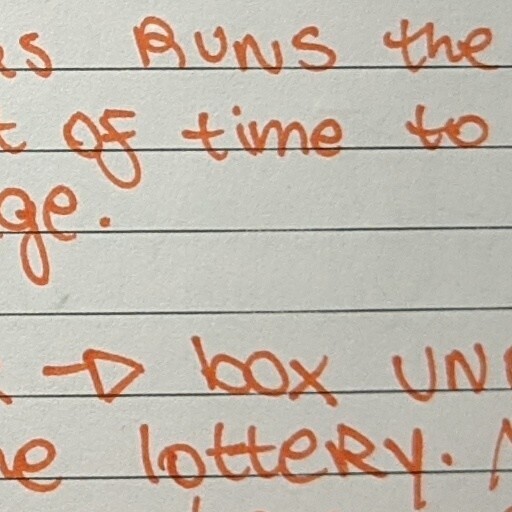 RUNS the
of time to
ge.
→ box UN
lotteRy.